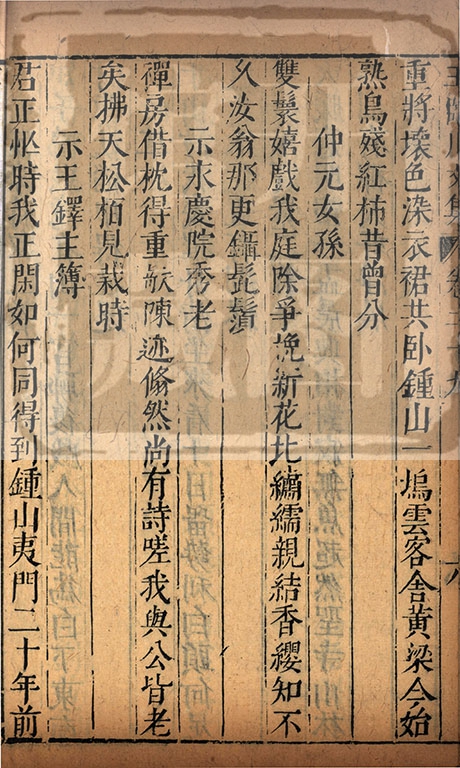 重將壞色染衣裙共卧鍾山一塢雲客舎黄粱今始
熟鳥殘紅柿昔曾分
仲元女孫
雙鬟嬉戲我庭除爭挽新花比繡繻親結香纓知不
久汝翁那更鑷髭鬚
示永慶院秀老
禪房借枕得重欹陳迹翛然尚有詩嗟我與公皆老
矣拂天松栢見栽時
示王鐸主簿
君正忙時我正閑如何同得到鍾山夷門二十年前